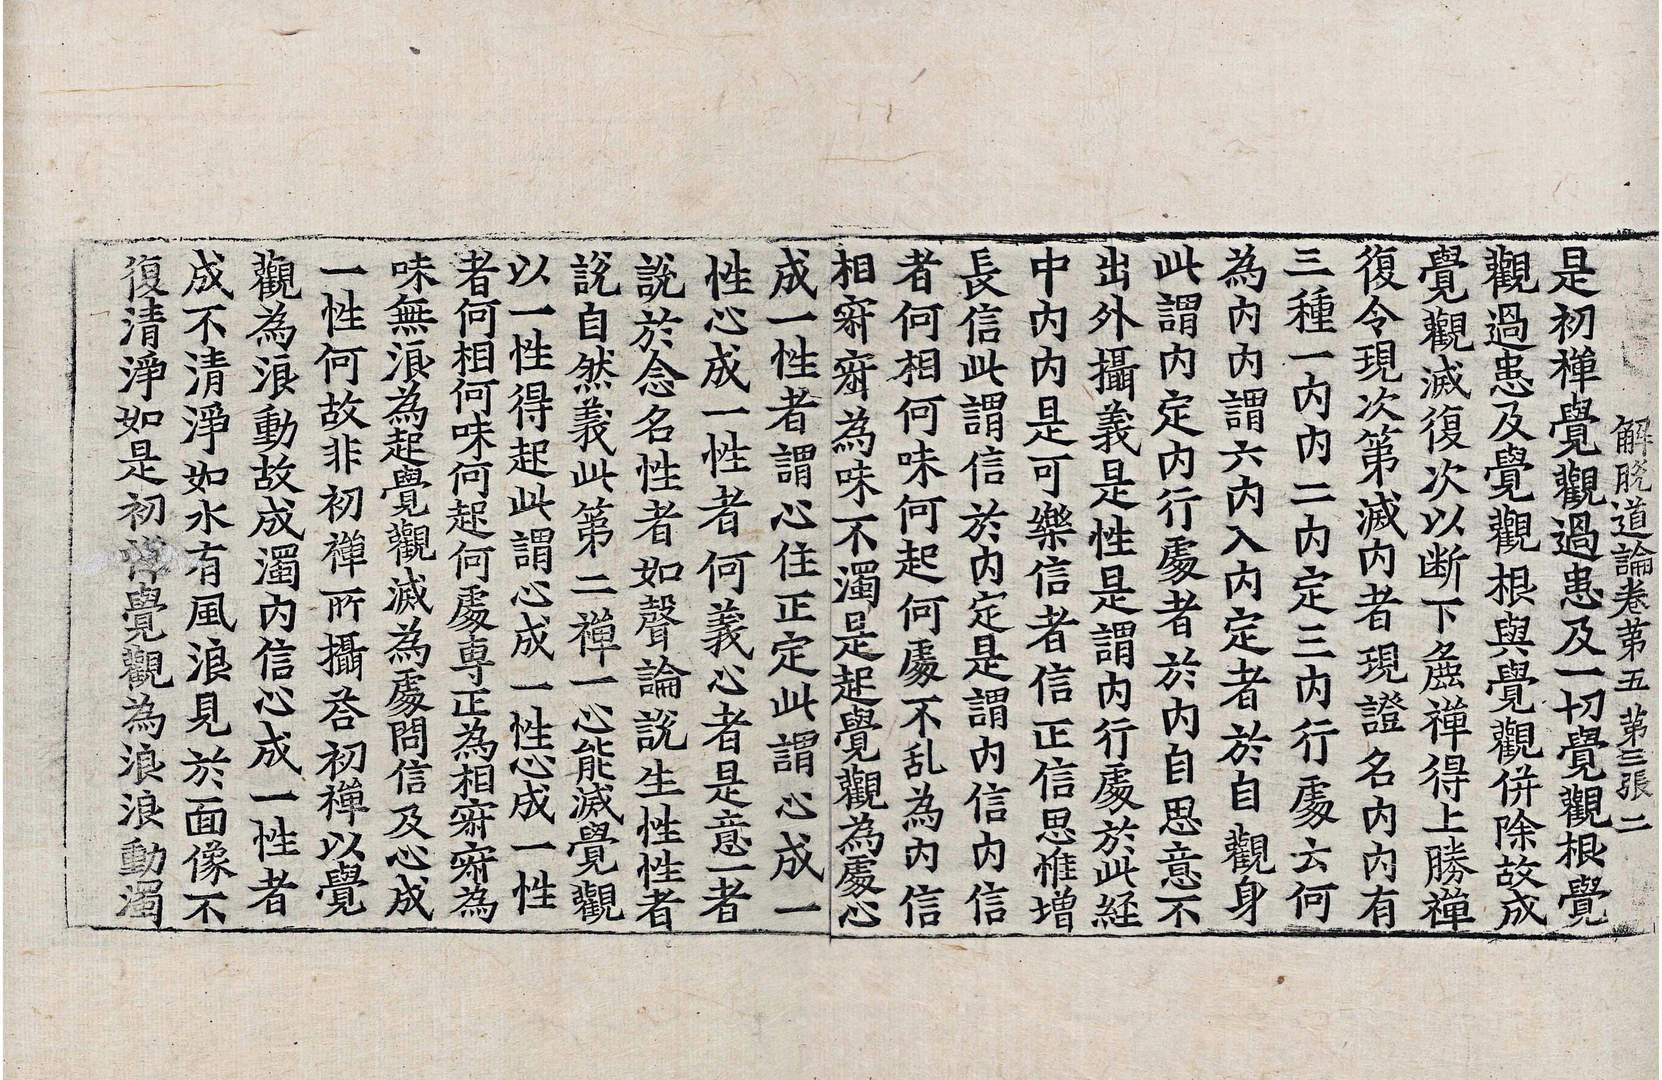 解脫道論卷第五　第三張　二
是初禪覺觀過患及一切覺觀根覺
觀過患及覺觀根與覺觀併除故成
覺觀滅復次以断下麁禪得上勝禪
復令現次第滅內者現證名內內有
三種一內內二內定三內行處云何
為內內謂六內入內定者於自觀身
此謂內定內行處者於內自思意不
出外攝義是性是謂內行處於此経
中內內是可樂信者信正信思惟增
長信此謂信於內定是謂內信內信
者何相何味何起何處不乱為內信
相㝥㝥為味不濁是起覺觀為處心
成一性者謂心住正定此謂心成一
性心成一性者何義心者是意一者
說於念名性者如聲論說生性性者
說自然義此第二禪一心能滅覺觀
以一性得起此謂心成一性心成一性
者何相何味何起何處専正為相㝥㝥為
味無浪為起覺觀滅為處問信及心成
一性何故非初禪所攝荅初禪以覺
觀為浪動故成濁內信心成一性者
成不清淨如水有風浪見於面像不
復清淨如是初禪覺觀為浪浪動濁